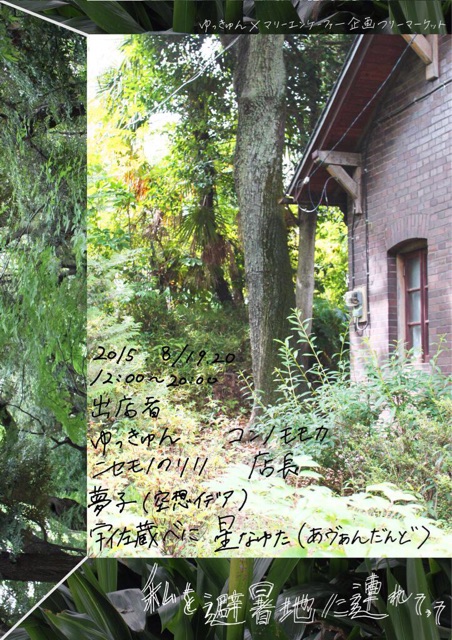 ゆっきゅん×マリーエンケーファー企画フリーマーケット
2015 8/19.20
12:00〜20:00
出店者
ゆっきゅん コンノモモカ
ニセモノノリリ 店長
夢子(空想イデア)
宇佐蔵べに 星なゆた(あヴぁんだんど)
私を避暑地に連れてって